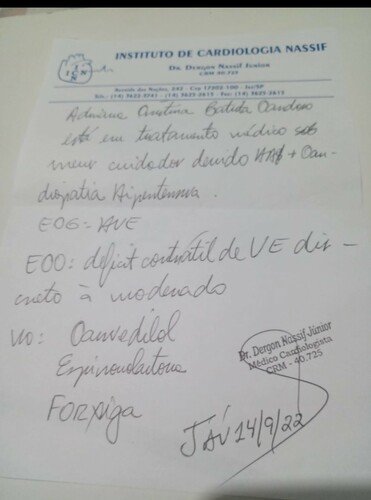 INSTITUTO DE CARDIOLOGIA NASSIF
DR. DERGON NASSIF JÚNIOR
CRM 40.725
Avenida das Nações, 242 - Cep 17202-100 - Jaú/SP
Adriana Cristina Batista Cardoso
está em tratamento médico sob
meus cuidados devido HAS + Car-
diopatia Hipertensiva.
ECG = HVE
ECO: deficit contrátil de VE dis-
creto à moderado
uso: Carvedilol
Espironolactona
FORXIGA
Dr. Dergon Nassif Júnior
Médico Cardiologista
CRM - 40.725
JAÚ 14/9/22